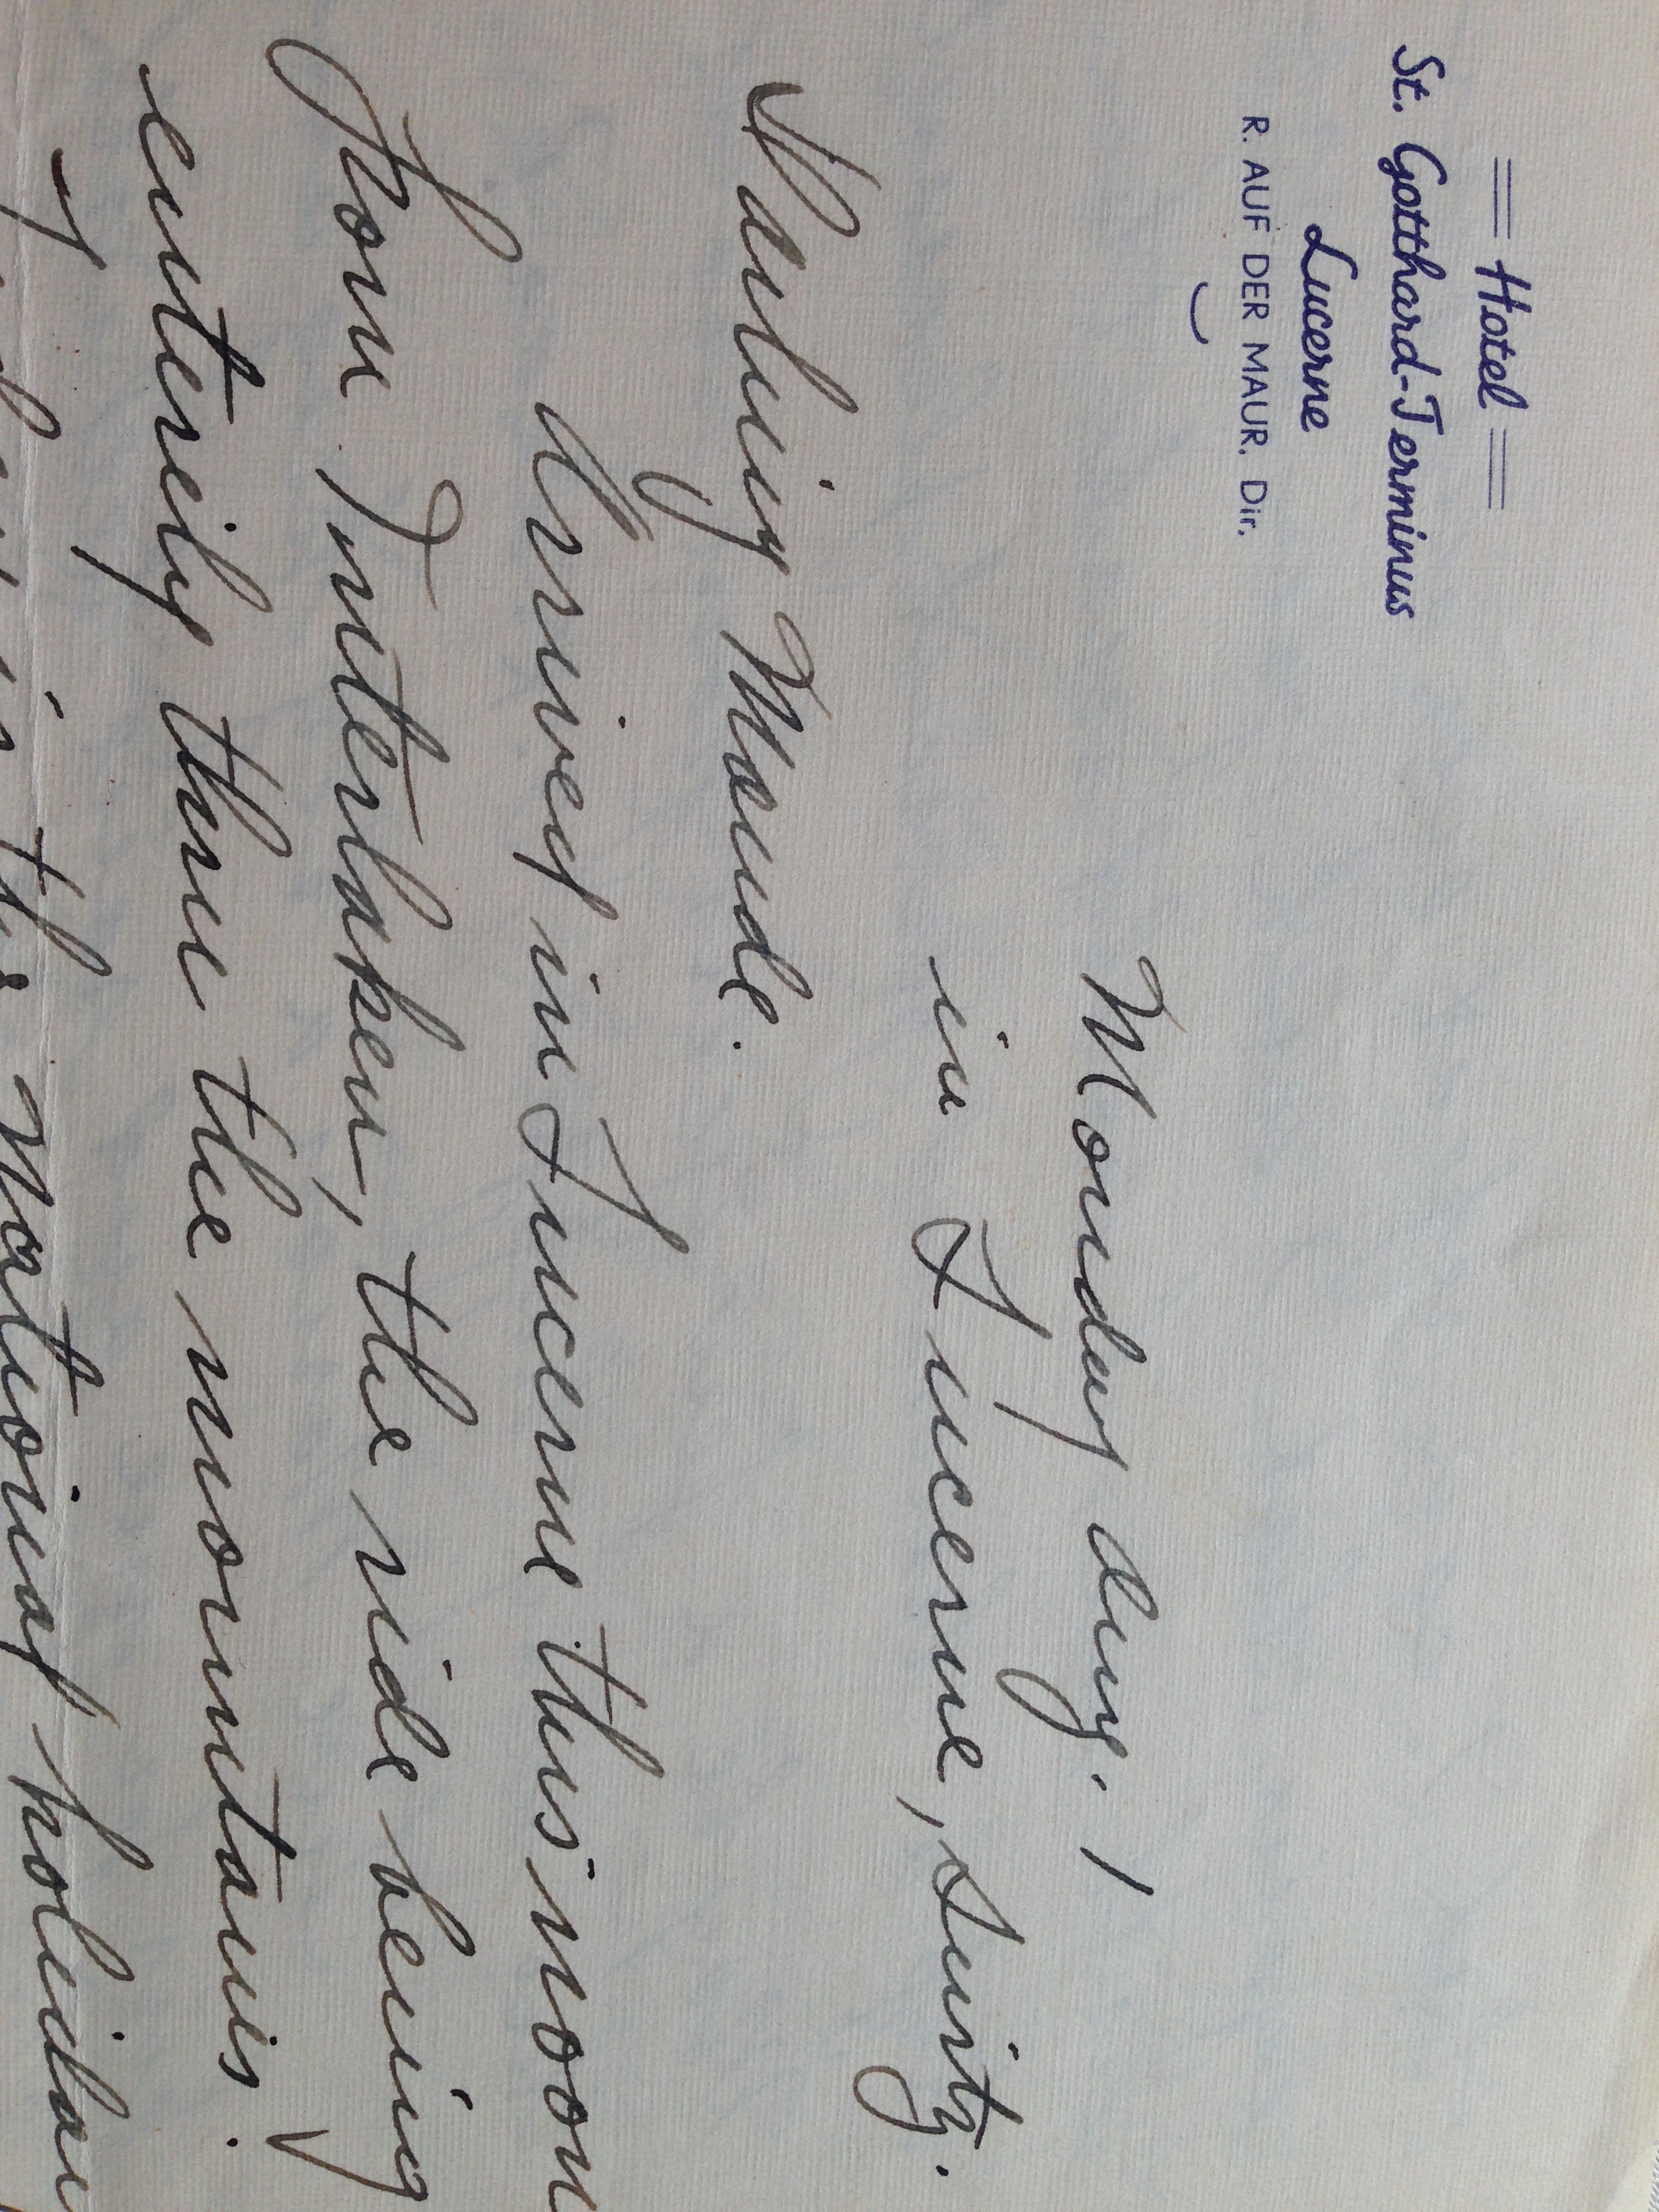 Hotel
St. Gotthard-Terminus
Lucerne
R. AUF DER MAUR. Dir.
Monday aug. 1
in Lucerne, Switz.
Darling Maude.
Arrived in Lucerne this noon
from Interlaken, the ride being
entirely thru the mountains.
in the national holiday